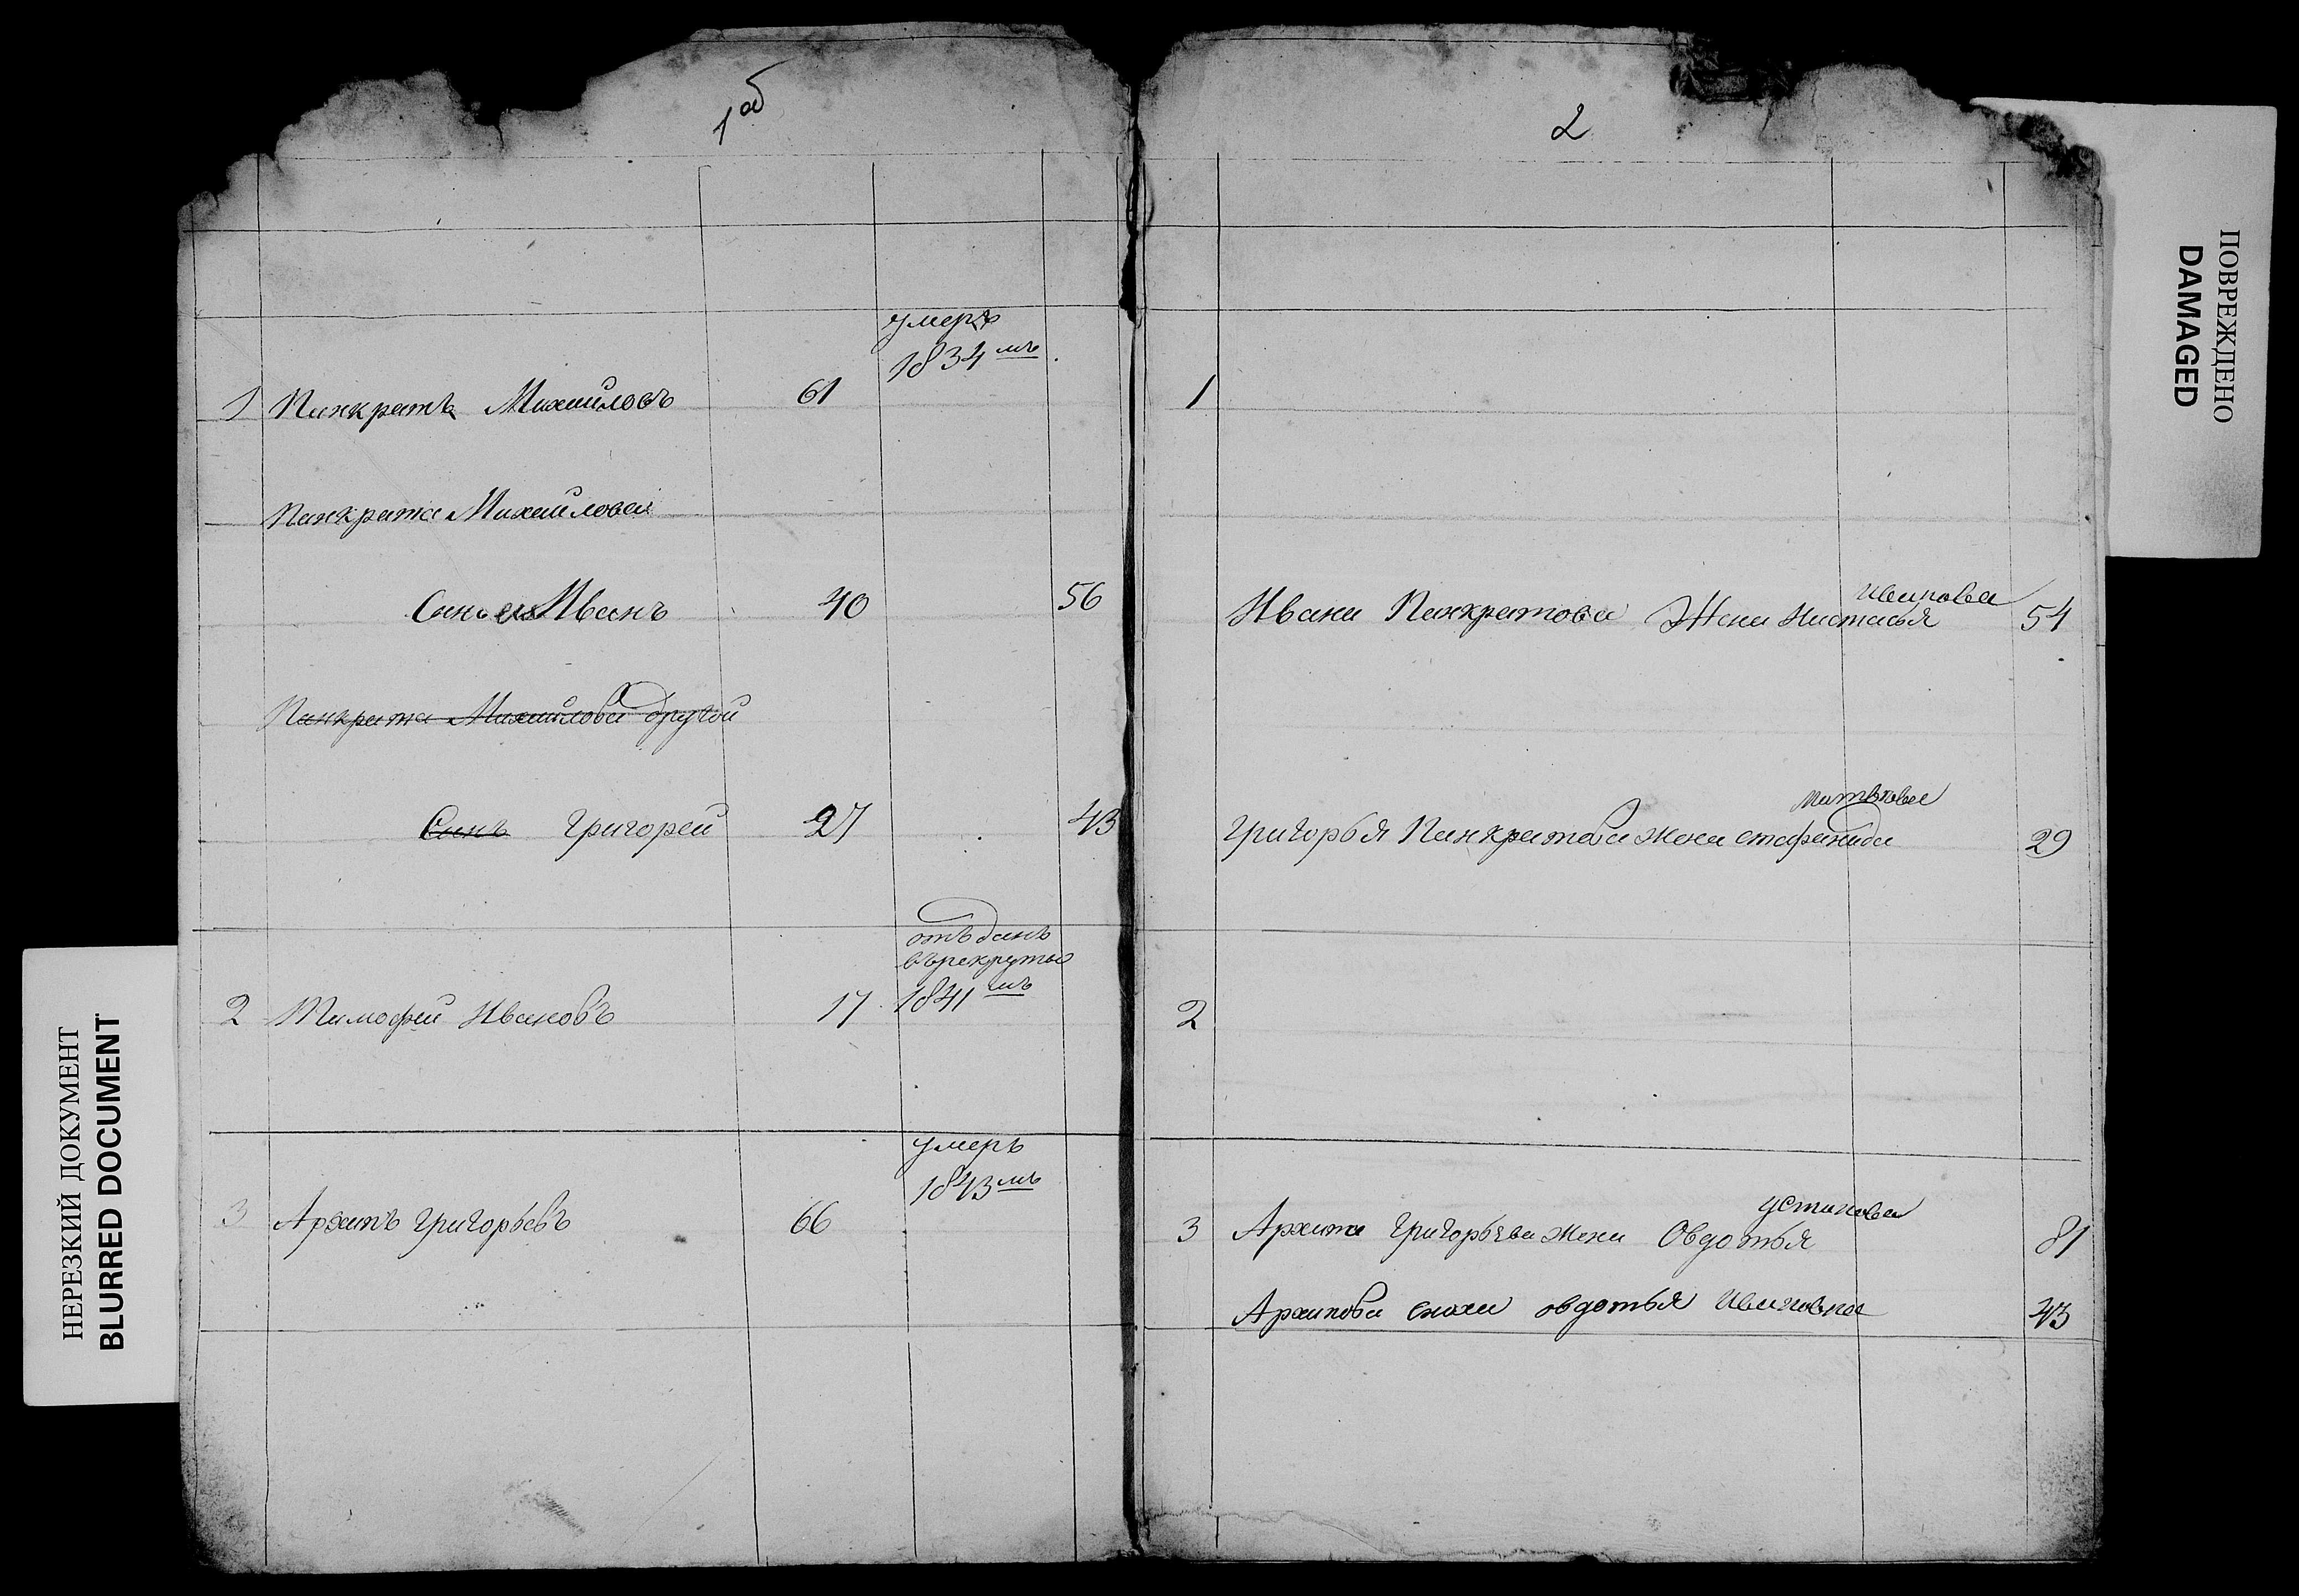 1об
умеръ
1834мъ
1 Панкратъ Михайловъ 61
Панкрата Михайлова
Сынъ Иванъ 40 56
Панкрата Михайлова другой
Сынъ Григорей 27 43
отъданъ
въ рекруты
2 Тимофей Ивановъ 17 1841мъ
умеръ
1843мъ
3 Архипъ Григорьевъ 66
2
1
Иванова
Ивана Панкратова Жена Настасья 54
Григорья Панкратова жена стафанида 29
2
устинова
3 Архипа Григорьева жена Овдотья 81
Архипова сноха овдотья Ивановна 43
НЕРЕЗКИЙ ДОКУМЕНТ
BLURRED DOCUMENT
ПОВРЕЖДЕНО
DAMAGED